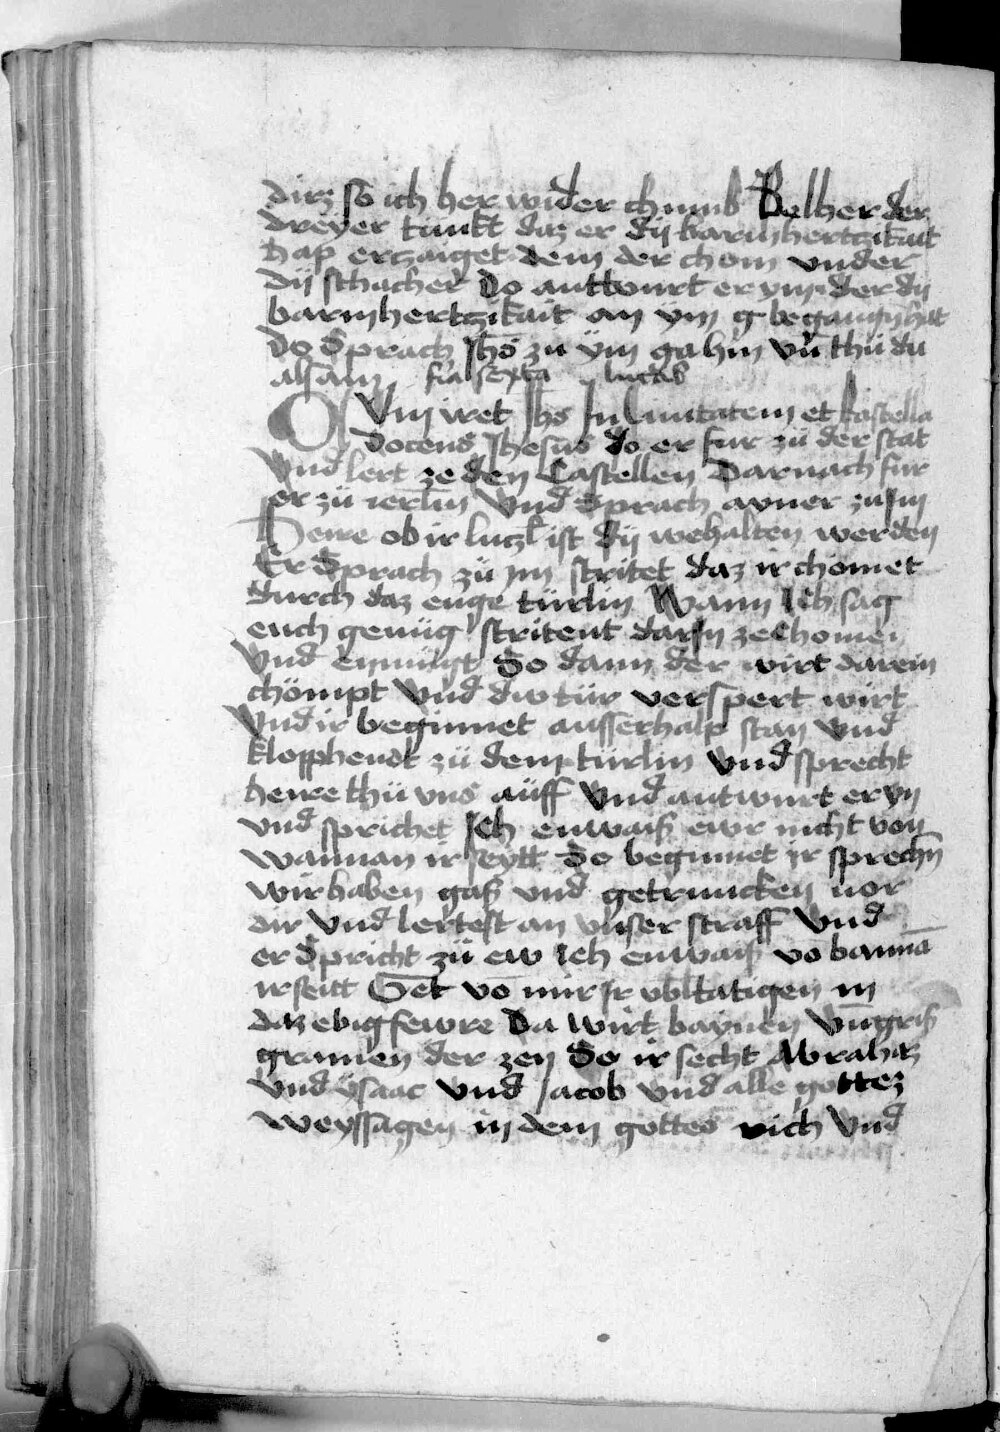 dirz so ich her wider chumb Welher der
dreyer tunkt daz er dy barmhertzikait
hab ertzaiget dem der chom vnder
dy schacher Do antwurt er ym der dy
barmhertzikait an ym begangn hat
do Sprach Jhs zu ym ga hin vn thu du
alsam fia sexta lucas
Jhs In Ciuitatem et Castella
docens Jhesus do er fur zu der stat
Vnd lert ze den Castellen Darnach fur
er zu ierlm Vnd Sprach ayner zu im
Herre ob ir lutzl ist dy wehalten werden
Er Sprach zu im stritet daz ir chomet
durch daz enge turlin Wann Ich sag
euch genug stritent darin ze chomen
Vnd enmugt So dann der wirt darein
chömpt Vnd diw tür verspert wirt
Vnd ir beginnet ausserhalb stan Vnd
klopphendt zu dem turlin Vnd sprecht
herre thu vns auff Vnd antwurt er yn
vnd sprichet Ich enwaiß ewr nicht von
wannan ir seytt So beginnet ir sprechn
wir haben gaß vnd getruncken uor
dir Vnd lertest an vnser straff Vnd
er Spricht zu ew Ich enwaiß vo wanna
ir seitt Get vo mir Ir vbltatigen in
daz ebig fewre Da wirt baynen Vn griß
gramen der zen So ir secht Abraham
Vnd ysaac Vnd Jacob Vnd alle gottez
weyssagen in dem gottes rich Vnd